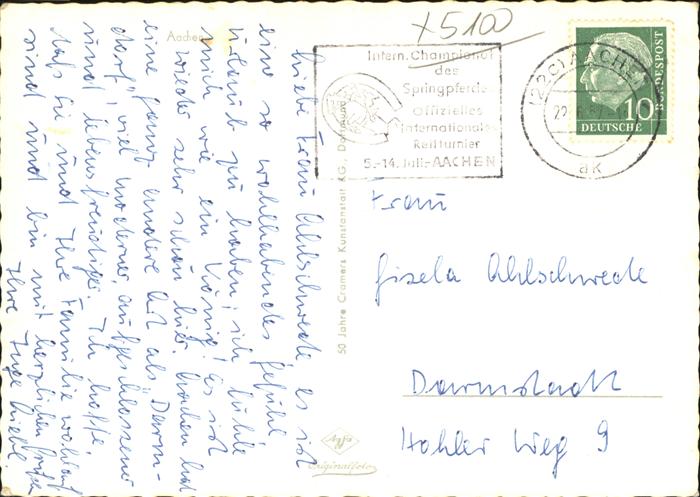 x5100
Aachen
Intern. Championat
des
Springpferdes
Offizielles
Internationales
Reitturnier
5.-14. Juli-AACHEN
(22c) AACHEN
ak
BUNDESPOST
10
DEUTSCHE
Liebe Frau Ahlschwede es ist
eine so wohlhabendes Gefühl
Urlaub zu haben; ich fühle
mich wie ein König! Es ist
wieder sehr schön hier. Aachen hat
eine ganz andere Art als "Darm-
dorf", viel moderner, aufgeschlossener
und lebensfreudiger. Ich hoffe,
daß Sie und Ihre Familie wohlauf
sind und bin mit herzlichen Grüßen
Ihre Inge
50 Jahre Cramers Kunstanstalt KG., Dortmund
Agfa
Originalfoto
Frau
Gisela Ahlschwede
Darmstadt
Hohler Weg 9